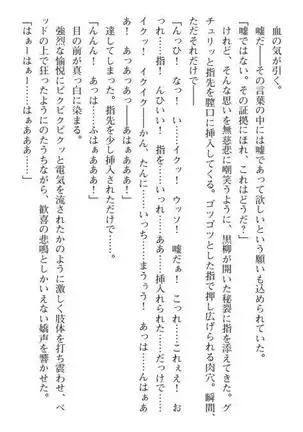 血の気が引く。
「嘘だ――その言葉の中には嘘であって欲しいという願いも込められていた。
「嘘ではない。その証拠にほれ、これはどうだ？」
けれど、そんな思いを無慈悲に嘲笑うように、黒柳が開いた秘裂に指を添えてきた。グ
チュリッと指先を膣口に挿入してくる。ゴツゴツとした指で押し広げられる肉穴。瞬間、
ただそれだけで――
「んっひ！　なっ！　い……イクッ！　ウッソ！　嘘だぁ！　こっれ……これぇえ！　お
っれ……指！　んひいい！　指を……いっれ……ああ……挿入れられた……だっけで……
イクッ！　イクイクー！　かん、たんに……いっち……まうぅう！　あっは……んはぁあ
あ！　あっあっあっ――はぁああああ！」
達してしまった。指先を少し挿入されただけで……。
「んんん！　あっは……ふはぁああああ！」
目の前が真っ白に染まる。
強烈な愉悦にビクビクビクッと電気を流されたかのように激しく肢体を打ち震わせ、ベ
ッドの上で狂ったようにのたうちながら、歓喜の悲鳴としかいえない嬌声を響かせた。
「はぁーはぁー……はぁあああ……」